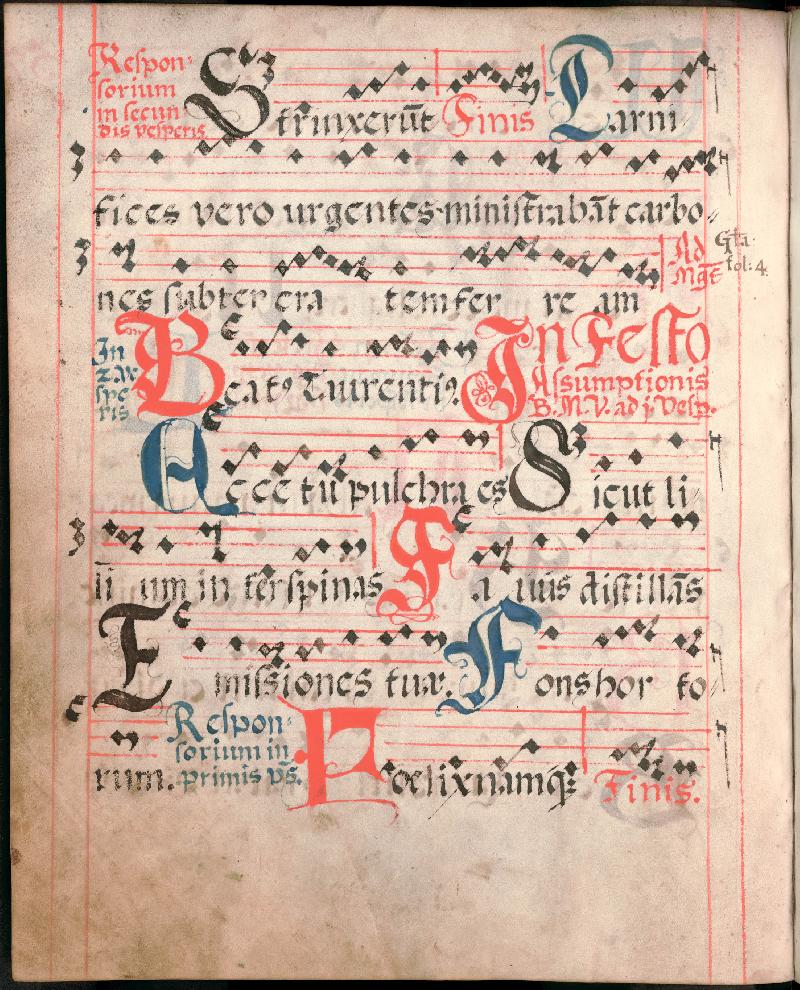 Respon:
sorium
in secun
dis vesperis
Strinxerūt Finis Carni
fices vero urgentes ministrabāt carbo,
nes subter cra temfer re am
Ad
Mgt
Gła
fol: 4
In
2.
spe
ris
Beatꝰ Laurentiꝰ.
In Festo
Assumptionis
B. M. V. ad j. Vesp.
Ecce tu pulchra es Sicut li
li um in ter spinas Fa uus distillās
Emissiones tuæ. Fons hor to
rum.
Respon:
sorium in
primis vs.
Foelix namqȝ Finis.